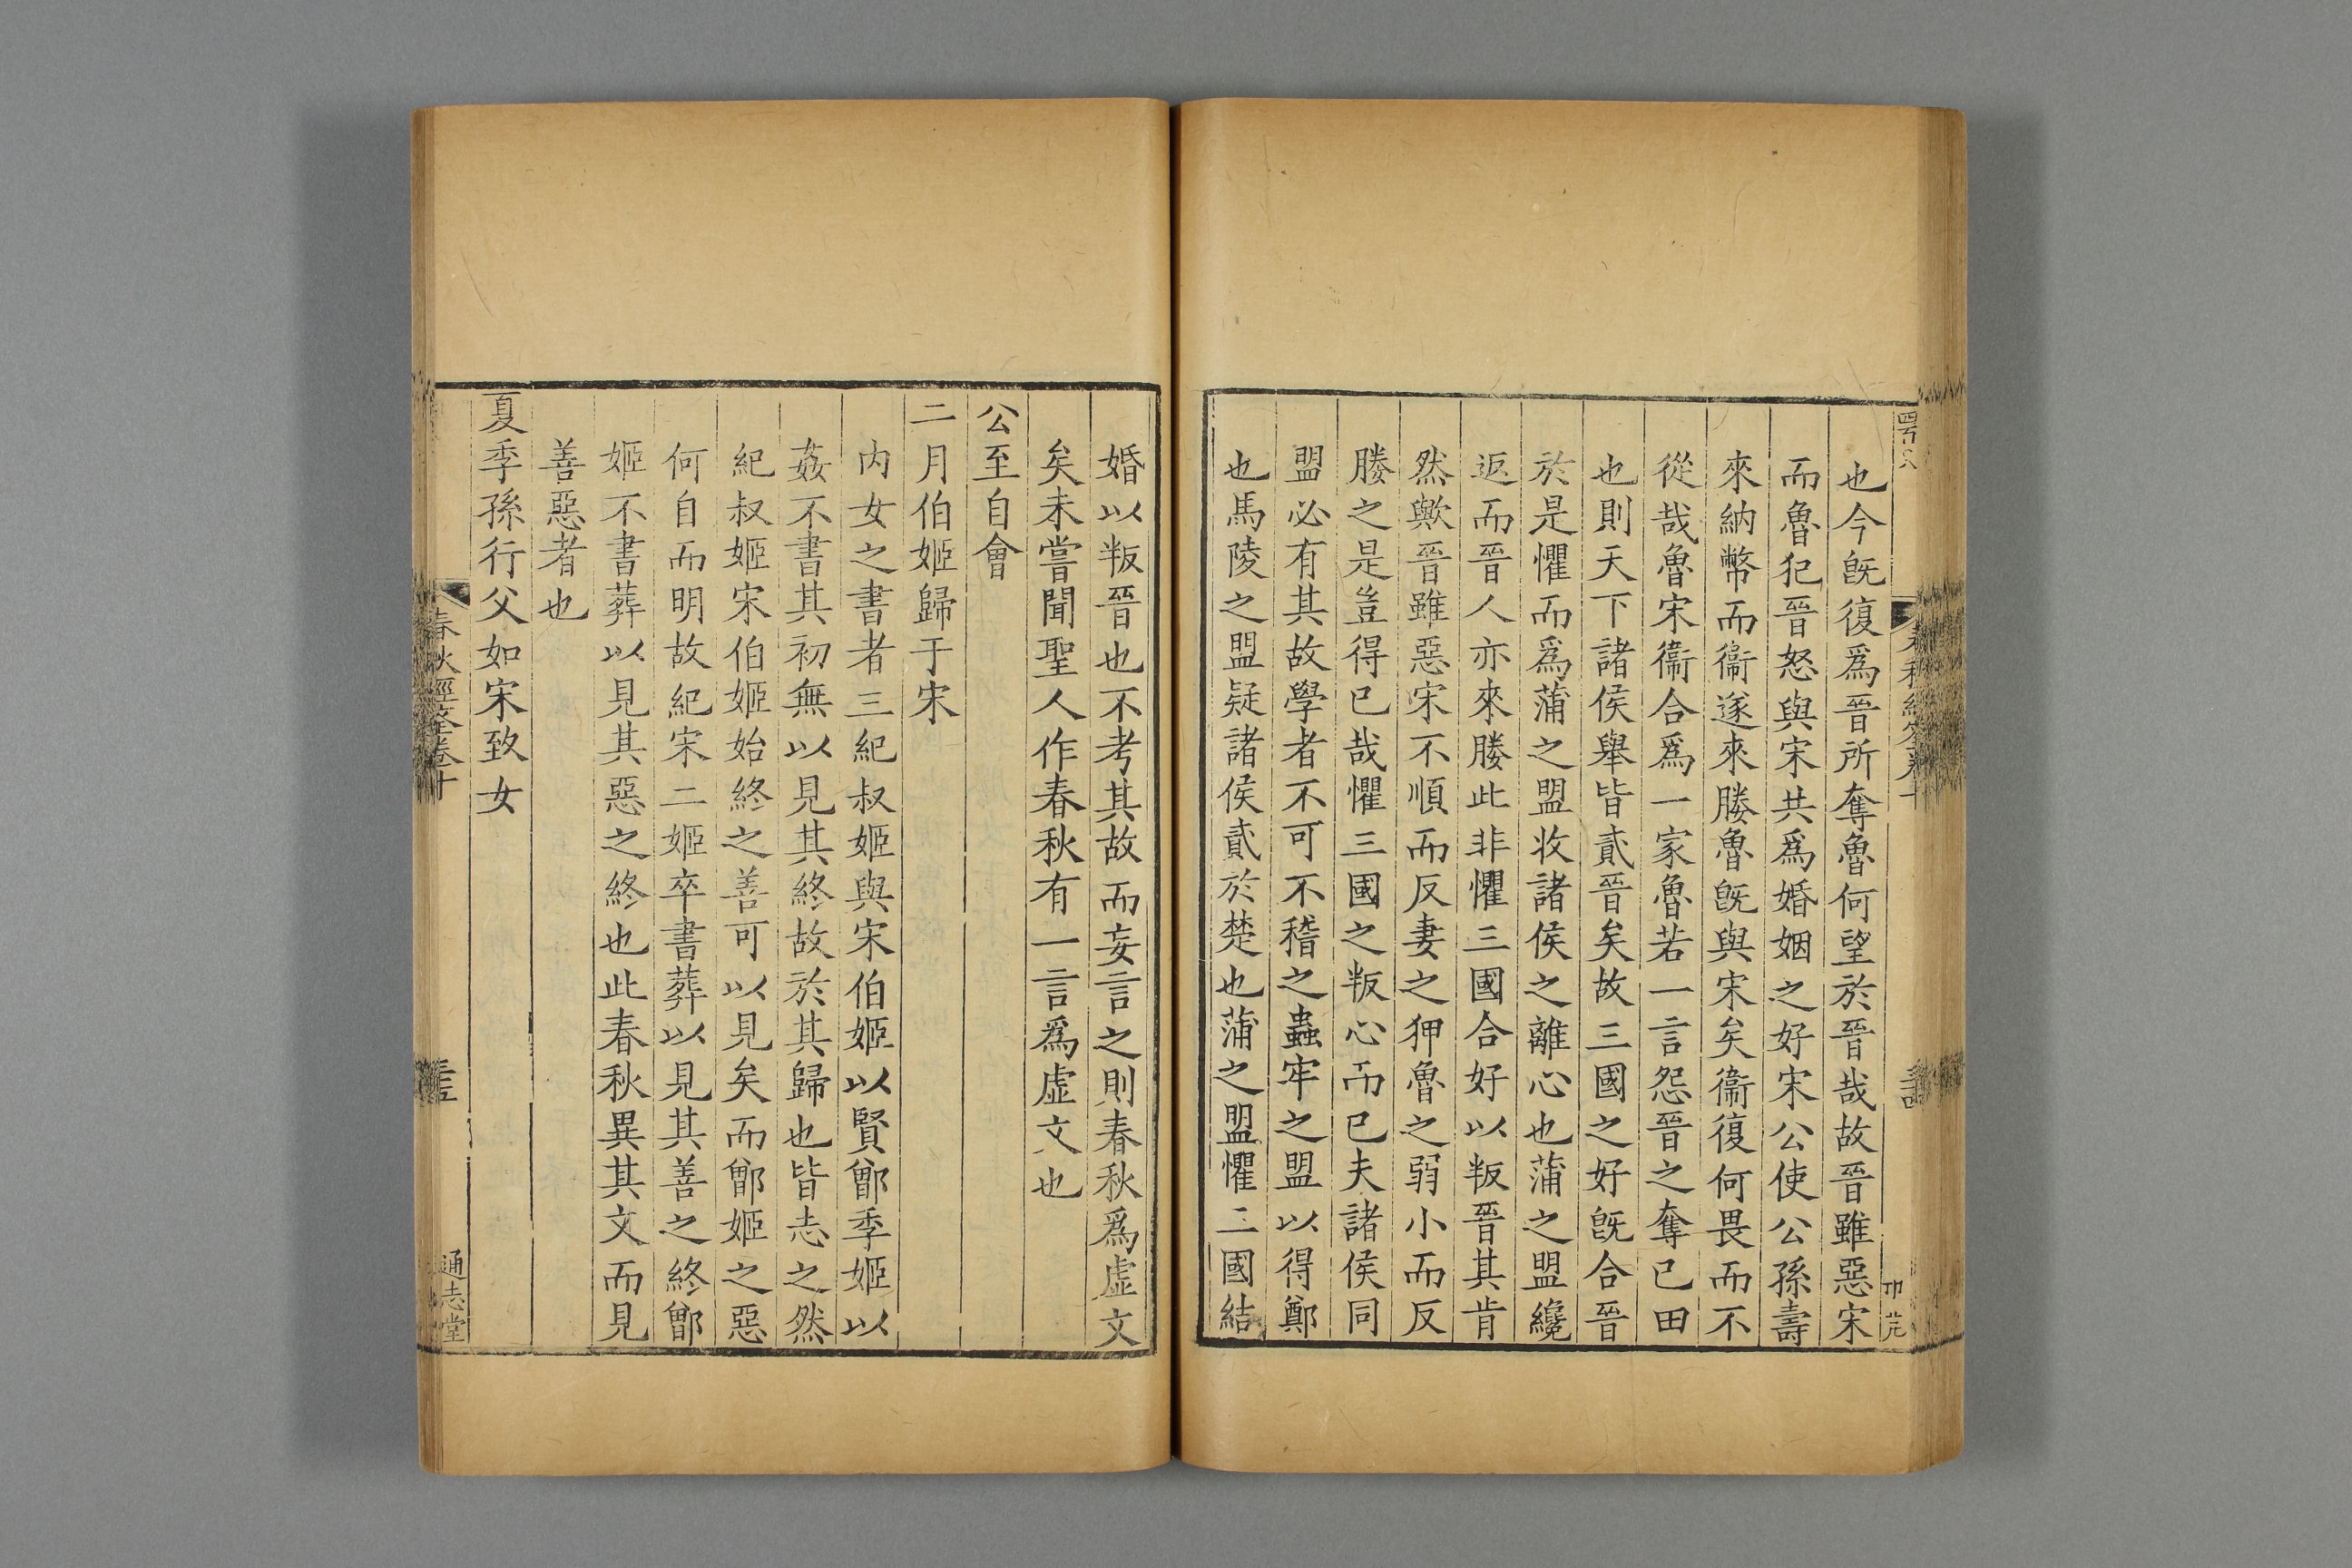 也今旣復爲晉所奪魯何望於晉哉故晉雖惡宋
而魯犯晉怒與宋共爲婚姻之好宋公使公孫壽
來納幣而衞遂來媵魯旣與宋矣衞復何畏而不
從哉魯宋衞合爲一家魯若一言怨晉之奪已田
也則天下諸侯舉皆貳晉矣故三國之好旣合晉
於是懼而爲蒲之盟收諸侯之離心也蒲之盟纔
返而晉人亦來媵此非懼三國合好以叛晉其肯
然歟晉雖惡宋不順而反妻之狎魯之弱小而反
媵之是豈得已哉懼三國之叛心而已夫諸侯同
盟必有其故學者不可不稽之蟲牢之盟以得鄭
也馬陵之盟疑諸侯貳於楚也蒲之盟懼二國結
婚以叛晉也不考其故而妄言之則春秋爲虛文
矣未嘗聞聖人作春秋有一言爲虛文也
公至自會
二月伯姬歸于宋
内女之書者三紀叔姬與宋伯姬以賢鄫季姬以
姦不書其初無以見其終故於其歸也皆志之然
紀叔姬宋伯姬始終之善可以見矣而鄫姬之惡
何自而明故紀宋二姬卒書葬以見其善之終鄫
姬不書葬以見其惡之終也此春秋異其文而見
善惡者也
夏季孫行父如宋致女
春秋經筌卷十
通志堂